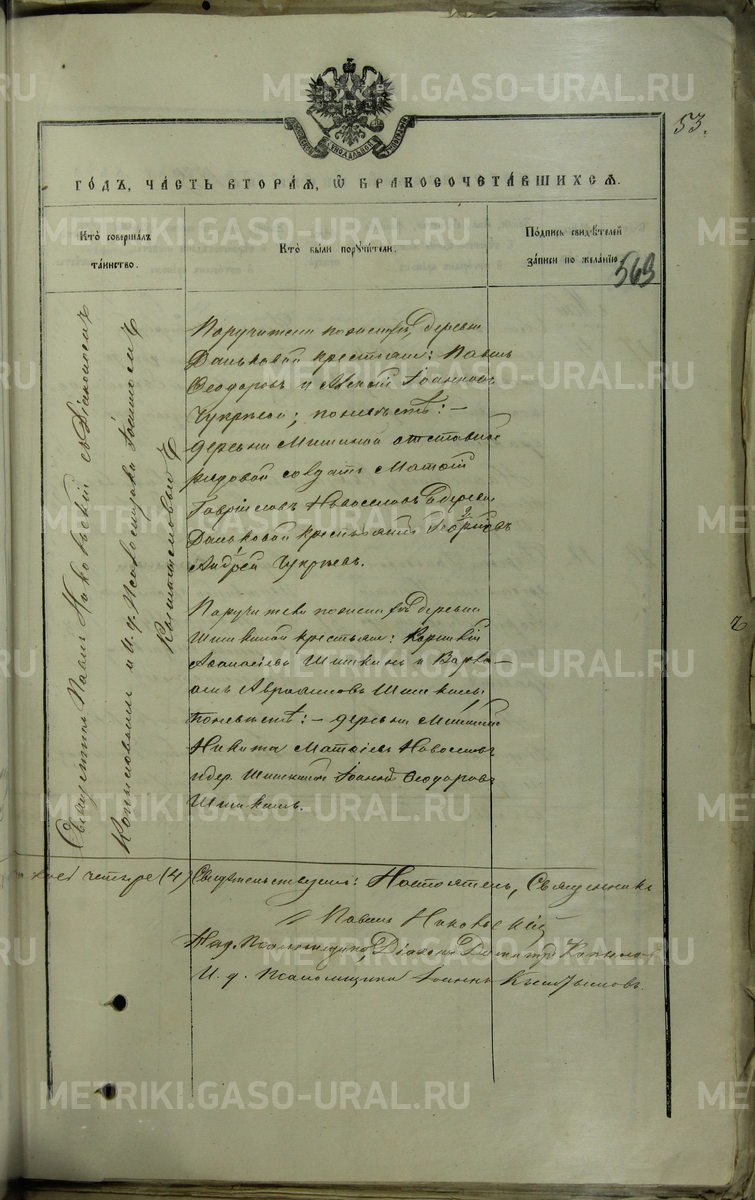 53.
ГО́ДЪ, ЧА́СТЬ ВТОРА́Я, Ѿ БРАКОСОЧЕТА́ВШИХСЯ.
КТО̀ СОВЕРША́ЛЪ
ТА́ИНСТВО.
КТО̀ БЫ́ЛИ ПОРУЧИ́ТЕЛИ.
ПО́ДПИСЬ СВИДѢ́ТЕЛЕЙ
ЗА́ПИСИ ПО ЖЕЛА́НІЮ
563
Священникъ Павелъ съ Діакономъ
и И. д. Псаломщика Іоанномъ
Поручители по женихѣ деревни
Даньковой крестьяне: Павелъ
Ѳеодоровъ и Іоанновъ
Чукрѣевы; по невѣстѣ: –
деревни Мишиной отставной
рядовой солдатъ Матѳій
Гавріиловъ Новоселовъ деревни
Даньковой крестьянинъ
Андрей Чукрѣевъ.
Поручители по женихѣ деревни
Шишкиной крестьяне:
Аѳанасіевъ Шишкинъ и Варла-
амъ Авраамовъ Шишкинъ
по невѣстѣ: – деревни Мишиной
Никита Матѳіевъ Новоселовъ
и дер. Шишкиной Іоаннъ Ѳеодоровъ
Шишкинъ.
четыре (4) Свидѣтельствуемъ: Настоятель, Священникъ
Павелъ
Діаконъ Димитрій
И. д. Псаломщика Іоаннъ
METRIKI.GASO-URAL.RU